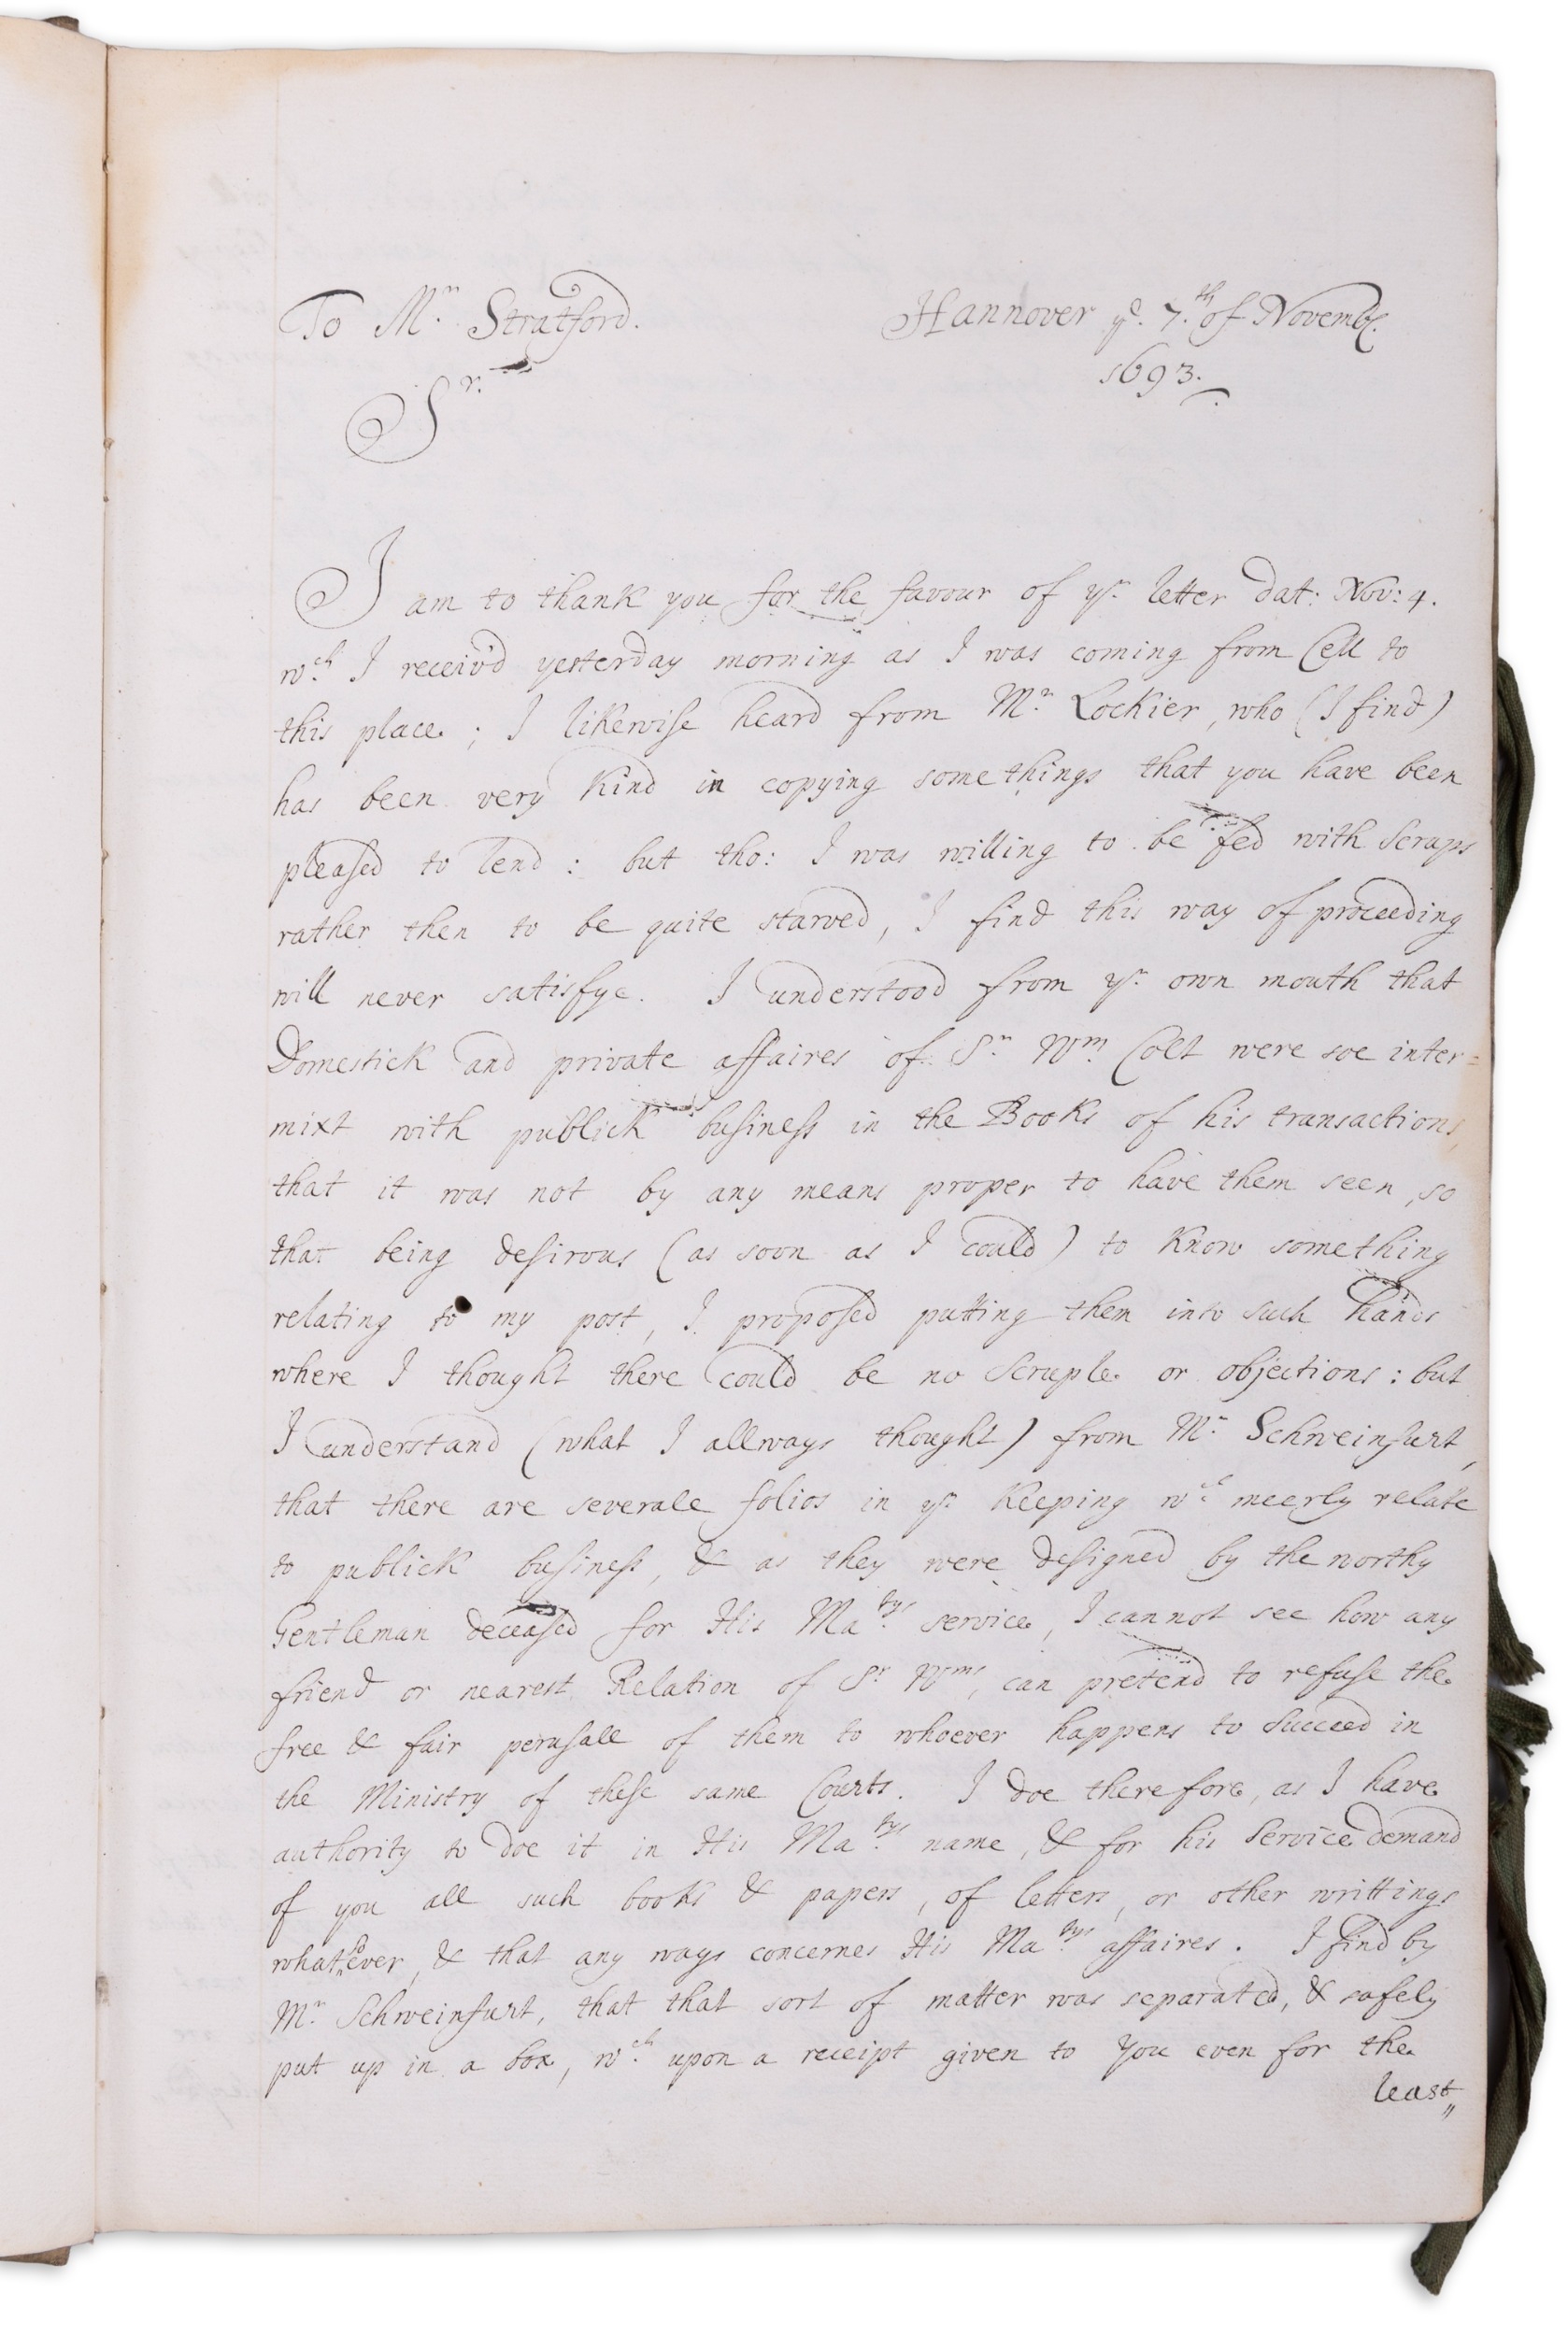 To Mr. Stratford.
Hannover ye. 7.th of Novemb.
1693.
Sr.
I am to thank you for the favour of yr. letter dat: Nov: 4.
wch. I receiv'd yesterday morning as I was coming from Cell to
this place; I likewise heard from Mr. Lockier, who (I find)
has been very kind in copying some things that you have been
pleased to lend: but tho: I was willing to be fed with scraps
rather then to be quite starved, I find this way of proceeding
will never satisfye. I understood from yr. own mouth that
Domestick and private affaires of Sr. Wm. Colt were soe inter=
mixt with publick business in the Books of his transactions,
that it was not by any means proper to have them seen, so
that being desirous (as soon as I could) to know something
relating to my post, I proposed putting them into such hands
where I thought there could be no scruple or objections: but
I understand (what I allways thought) from Mr. Schweinfurt,
that there are severale folios in yr. keeping wch. meerly relate
to publick business, & as they were designed by the worthy
Gentleman deceased for His Matys. service, I can not see how any
friend or nearest Relation of Sr. Wms, can pretend to refuse the
free & fair perusall of them to whoever happens to succeed in
the Ministry of these same Courts. I doe therefore, as I have
authority to doe it in His Matys. name, & for his Service demand
of you all such books & papers, of letters, or other writtings
whatsoever, & that any ways concernes His Matys. affaires. I find by
Mr. Schweinfurt, that that sort of matter was separated, & safely
put up in a box, wch. upon a receipt given to you even for the
least,,